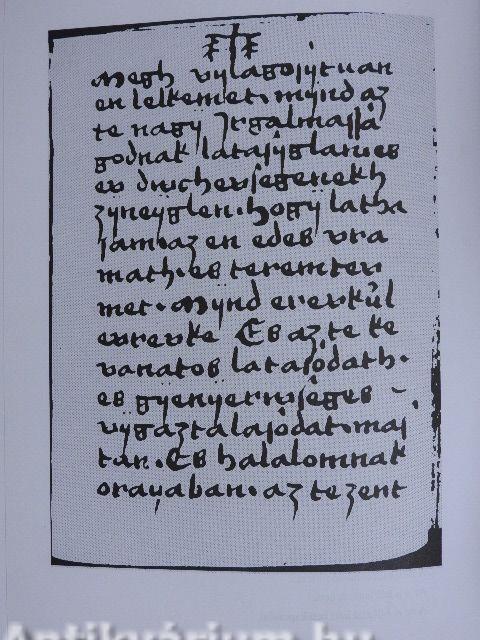 Megh vylagosÿtuan
en lelkemet. mÿnd az
te nagÿ Jrgalmassa
godnak latasÿglanies
ev dvchevsegenekh
zÿneyglen. hogÿ latha
sam. az en edes vra
math. es teremtev
met. Mÿnd erevkűl
evrevke Es az te ke
vanatos latasodath.
es gyenyervseges
vÿgaztalasodat. maj
tan. Es halalomnak
orayaban. az te zent
Antikvárium.hu